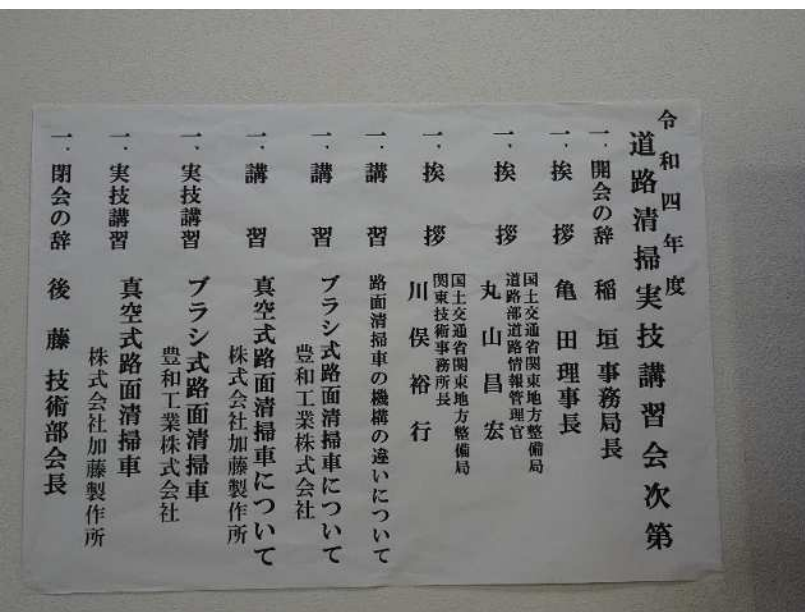 令和四年度
道路清掃実技講習会次第
一．開会の辞　稲垣事務局長
一．挨拶　亀田理事長
一．挨拶　国土交通省関東地方整備局
道路部道路情報管理官
丸山昌宏
一．挨拶　国土交通省関東地方整備局
関東技術事務所長
川俣裕行
一．講習　路面清掃車の機構の違いについて
一．講習　ブラシ式路面清掃車について
豊和工業株式会社
一．講習　真空式路面清掃車について
株式会社加藤製作所
一．実技講習　ブラシ式路面清掃車
豊和工業株式会社
一．実技講習　真空式路面清掃車
株式会社加藤製作所
一．閉会の辞　後藤技術部会長